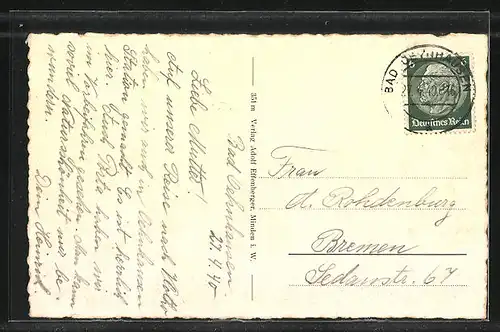 Bad Oeynhausen
27.4.40
Liebe Mutti!
Auf unserer Reise nach Holth.
haben wir auch in Oeynhausen
Station gemacht. Es ist herrlich
hier. Auch Porta haben wir
im Vorbeifahren gesehen. Man kann
soviel Naturschönheit nur be-
wundern.
Dein Heinrich
351 m Verlag Adolf Effenberger, Minden i. W.
BAD OEYNHAUSEN
Deutsches Reich
Frau
A. Rohdenburg
Bremen
Sedanstr. 67